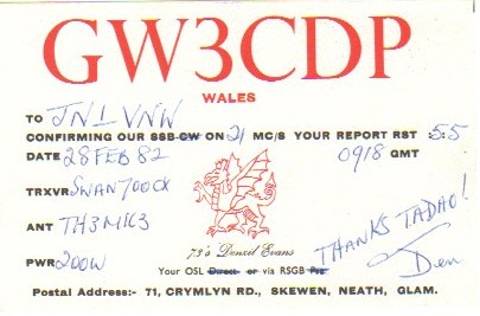 GW3CDP
WALES
TO JN1VNW
CONFIRMING OUR SSB-CW ON 21 MC/S YOUR REPORT RST 5:5
DATE 28 FEB 82 0918 GMT
TRXVR SWAN 700CX
ANT TH3MK3
PWR 200W
THANKS TADAO!
Den
73's Denzil Evans
Your QSL Direct or via RSGB
Postal Address:- 71, CRYMLYN RD., SKEWEN, NEATH, GLAM.